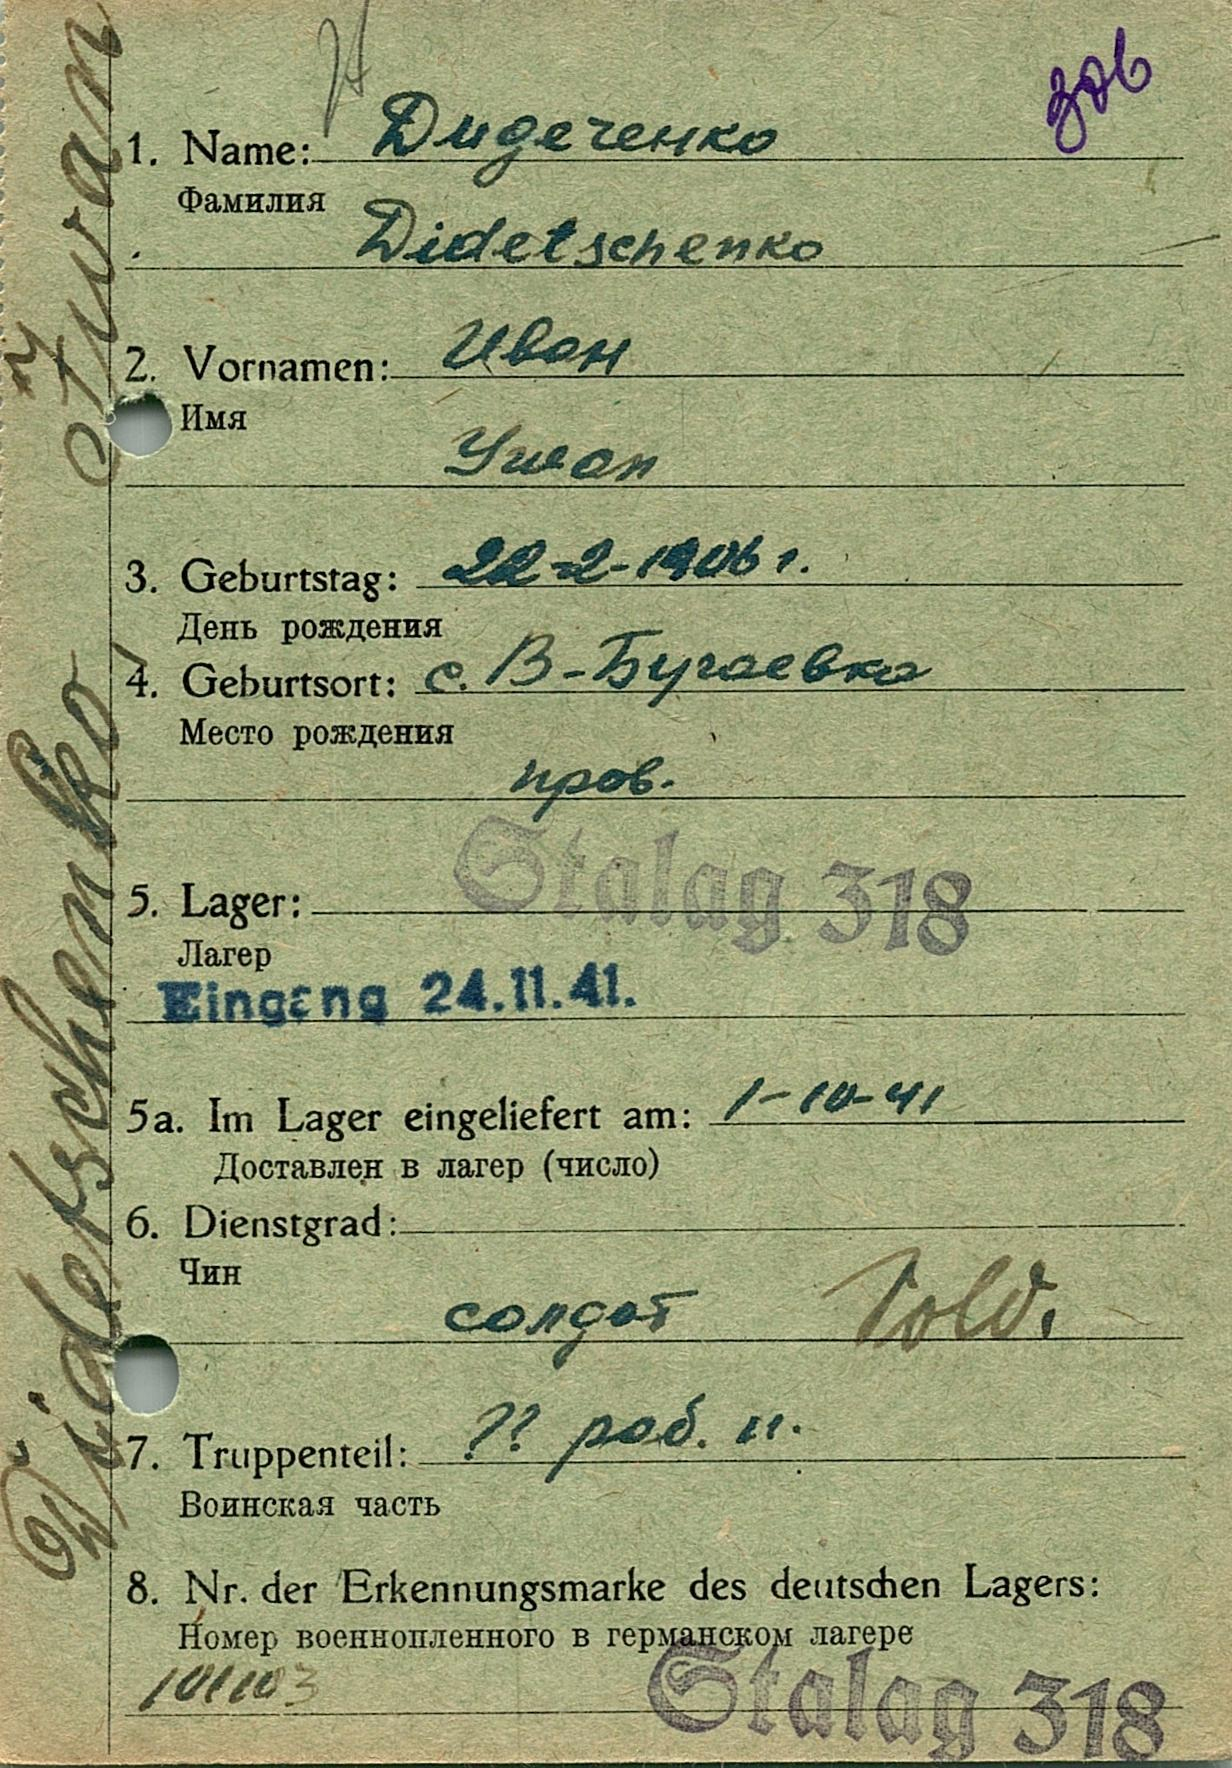 1. Name: Дидеченко
Фамилия
Didetschenko
2. Vornamen: Иван
Имя
Iwan
3. Geburtstag: 22-2-1906 г.
День рождения
4. Geburtsort: с. В-Бугаевка
Место рождения
пров.
5. Lager: Stalag 318
Лагер
Eingang 24.11.41.
5a. Im Lager eingeliefert am: 1-10-41
Доставлен в лагер (число)
6. Dienstgrad:
Чин
солдат Sold.
7. Truppenteil: ?? раб.
Воинская часть
8. Nr. der Erkennungsmarke des deutschen Lagers:
Номер военнопленного в германском лагере
Stalag 318
Didetschenko, Iwan